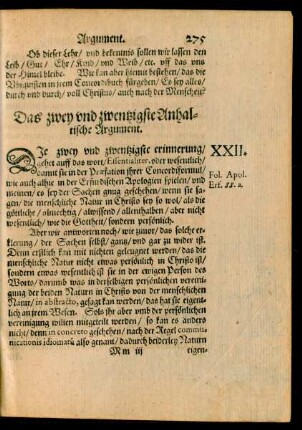 Argument. 275
Ob dieser Lehr / vnd bekentnis sollen wir lassen den
Leib / Gut / Ehr / Kind / vnd Weib / etc. vff das vns
der Himel bleibe. Wie kan aber hiemit bestehen / das die
Vbiquitisten in jrem Concordibuch fürgeben / Es sey alles /
durch vnd durch / voll Christus / auch nach der Menscheit?
Das zwey vnd zwentzigste Anhal-
tische Argument.
DJe zwey vnd zwentzigste erinnerung /
gehet auff das wort / Essentialiter, oder wesentlich /
damit sie in der Præfation jhrer Concordiformul /
wie auch alhie in der Erfurdischen Apologien spielen / vnd
meinen / es sey der Sachen gnug geschehen / wenn sie sa-
gen / die menschliche Natur in Christo sey so wol / als die
göttliche / almechtig / alwissend / allenthalben / aber nicht
wesentlich / wie die Gottheit / sondern persönlich.
XXII.
Fol. Apol.
Erf. 11. 2.
Aber wir antworten noch / wie zuuor / das solche er-
klerung / der Sachen selbst / gantz / vnd gar zu wider ist.
Denn erstlich kan mit nichten geleugnet werden / das die
menschliche Natur nicht etwas persönlich in Christo ist /
sondern etwas wesentlich ist sie in der ewigen Person des
Worts / darumb was in derselbigen persönlichen vereini-
gung der beiden Naturn in Christo von der menschlichen
Natur / in abstracto, gesagt kan werden / das hat sie eigent-
lich an jrem Wesen. Sols jhr aber vmb der persönlichen
vereinigung willen mitgeteilt werden / so kan es anders
nicht / denn in concreto geschehen / nach der Regel commu-
nicationis idiomatũ also genant / dadurch beiderley Naturn
Mm iij eigen-